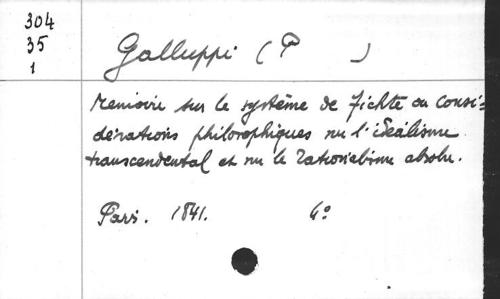 304
35
1
Galluppi (P )
Memoire sur le système de Fichte ou consi=
dérations philosophiques sur l'idéalisme
transcendental et sur le rationalisme absolu.
Paris. 1841. 4°